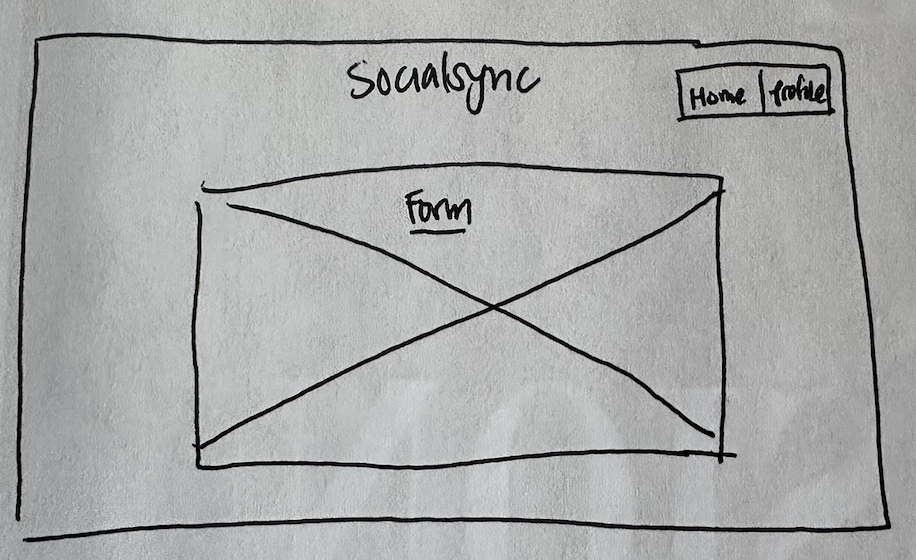 Socialsync
Home Profile
Form